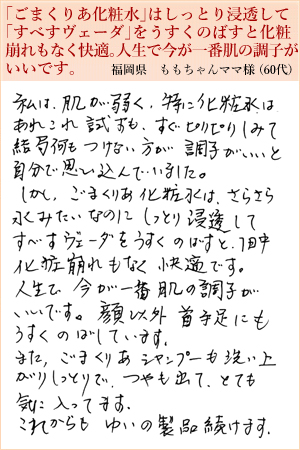 「ごまくりあ化粧水」はしっとり浸透して
「すべすヴェーダ」をうすくのばすと化粧
崩れもなく快適。人生で今が一番肌の調子が
いいです。　福岡県　ももちゃんママ様（60代）
私は、肌が弱く、特に化粧水は
あれこれ試すも、すぐピリピリしみて
結局何もつけない方が調子がいいと
自分で思い込んでいました。
しかし、ごまくりあ化粧水は、さらさら
水みたいなのにしっとり浸透して
すべすヴェーダをうすくのばすと、一日中
化粧崩れもなく快適です。
人生で今が一番肌の調子が
いいです。顔以外首手足にも
うすくのばしています。
また、ごまくりあシャンプーも洗い上
がりしっとりで、つやも出て、とても
気に入ってます。
これからもゆいの製品続けます。